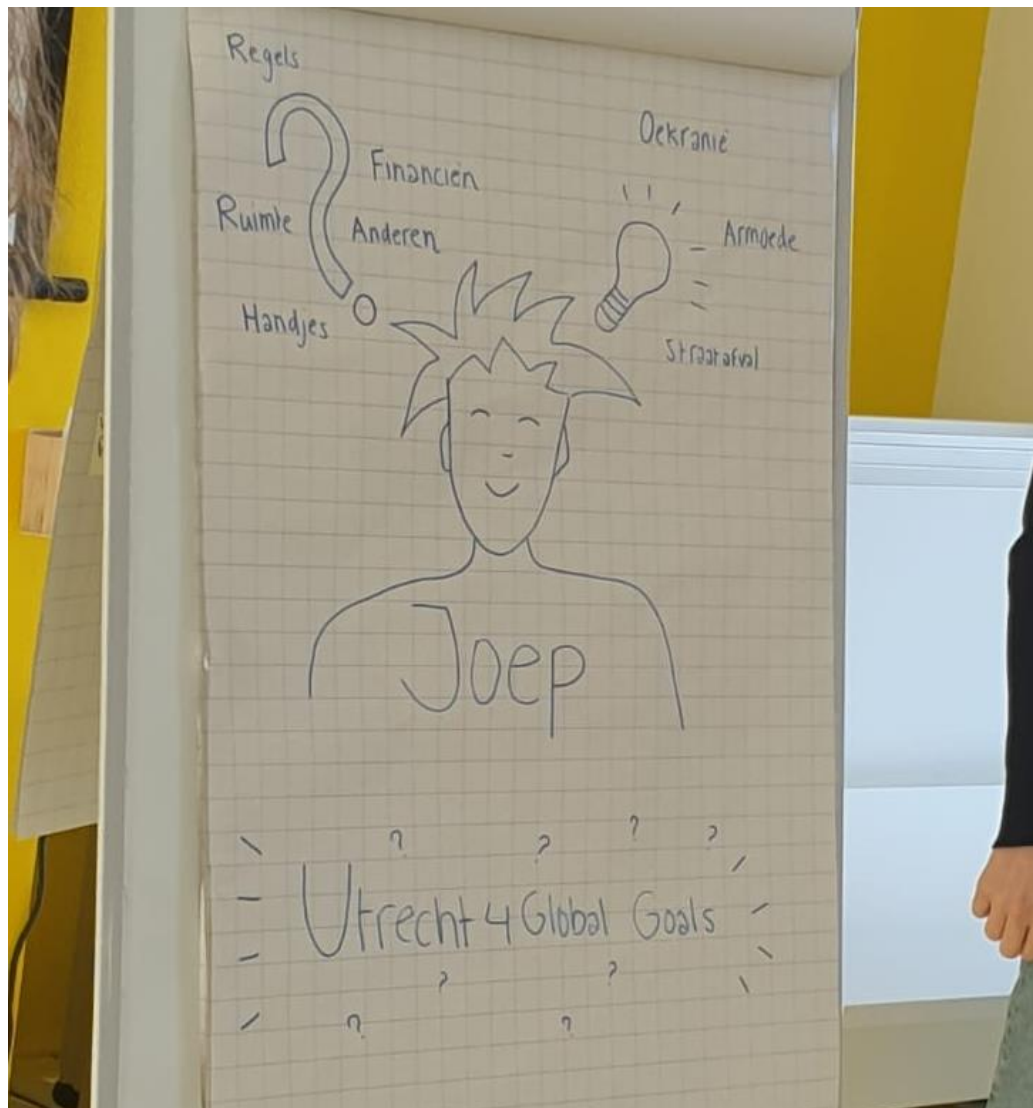 Regels
Financiën
Ruimte
Anderen
Handjes
Oekranië
Armoede
Straatafval
Joep
? ? ? ?
Utrecht 4 Global Goals
? ?
? ?